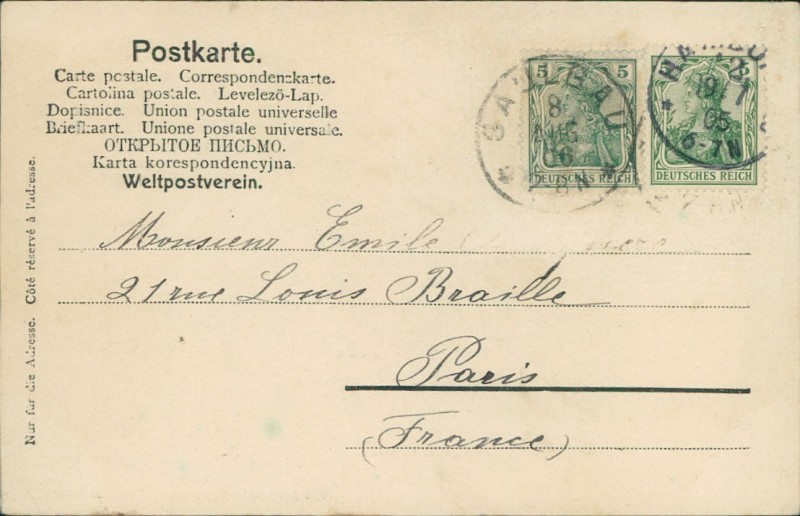 Postkarte.
Carte postale. Correspondenzkarte.
Cartolina postale. Levelező-Lap.
Dopisnice. Union postale universelle
Briefkaart. Unione postale universale.
ОТКРЫТОЕ ПИСЬМО.
Karta korespondencyjna.
Weltpostverein.
5 5
DEUTSCHES REICH
8
AUG
06
N
5 5
DEUTSCHES REICH
19 1
05
6-7N
Monsieur Emile
21 rue Louis Braille
Paris
(France)
Nur für die Adresse. Côté réservé à l'adresse.